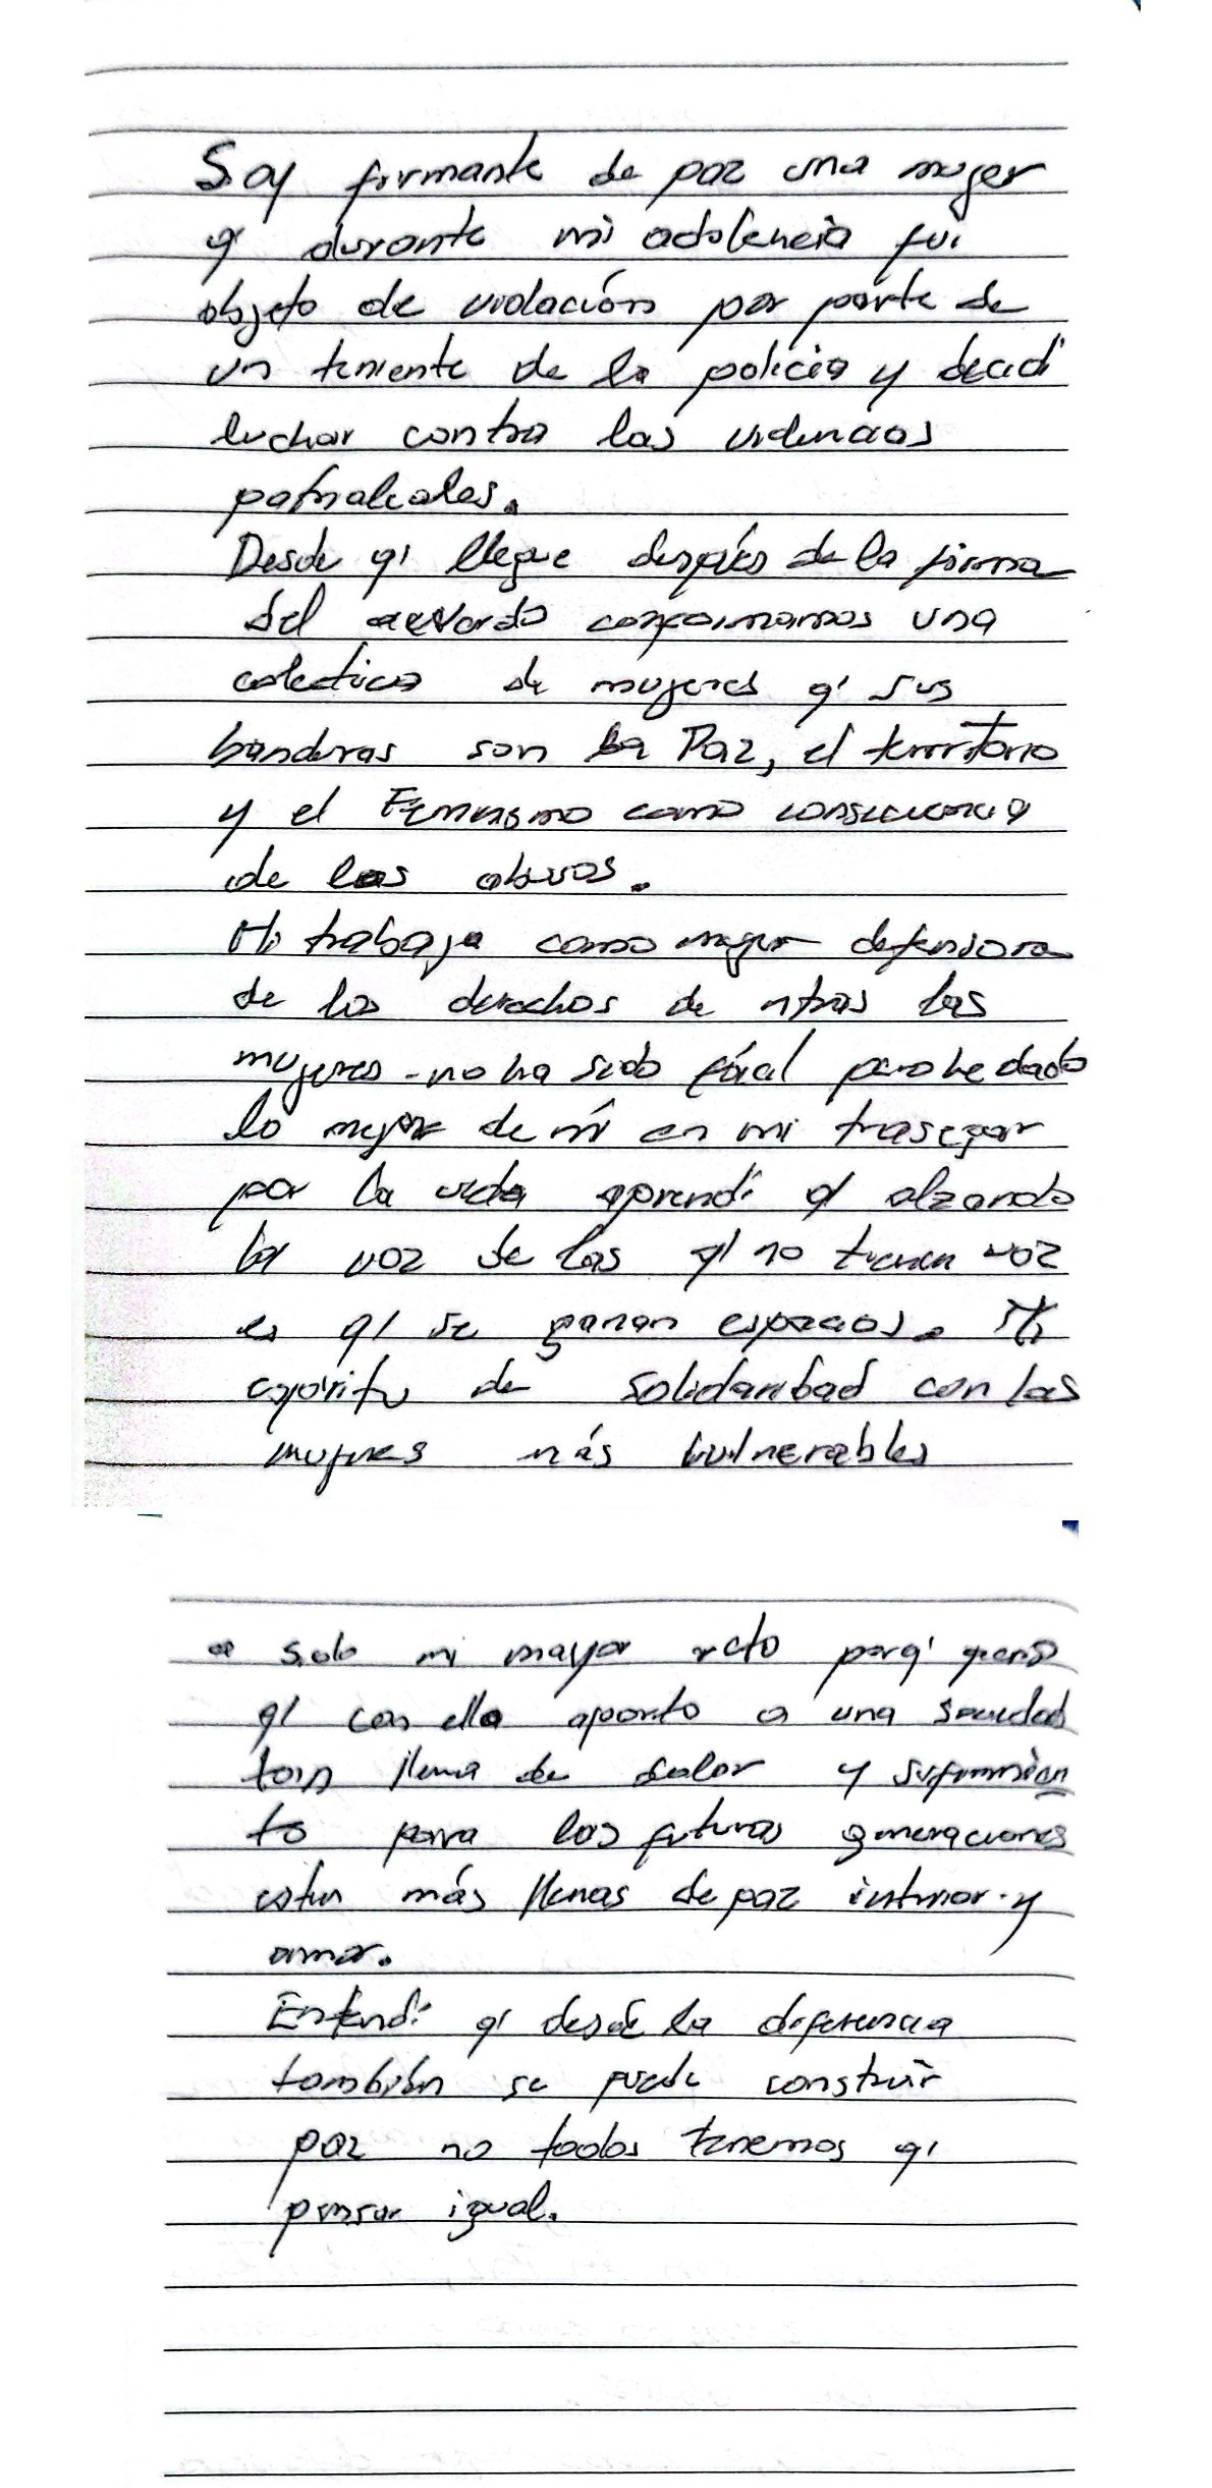 Soy firmante de paz una mujer
q' durante mi adolencia fui
objeto de violación por parte de
un teniente de la policía y decidí
luchar contra las violencias
patrialcales.
Desde q' llegue después de la firma
del acuerdo conformamos una
colectiva de mujeres q' sus
banderas son la Paz, el territorio
y el Feminismo como consecuencia
de los abusos.
Mi trabajo como mujer defensora
de los derechos de ntras las
mujeres - no ha sido fácil pero he dado
lo mejor de mí en mi trasegar
por la vida aprendí q' alzando
la voz de las q' no tienen voz
es q' se ganan espacios. Mi
espíritu de solidaridad con las
mujeres más vulnerables
a sido mi mayor reto porq' quiero
q' con ello aporto a una sociedad
tan llena de dolor y sufrimien
to para las futuras generaciones
esten más llenas de paz interior y
amor.
Entendí q' desde la diferencia
también se puede construir
paz no todos tenemos q'
pensar igual.